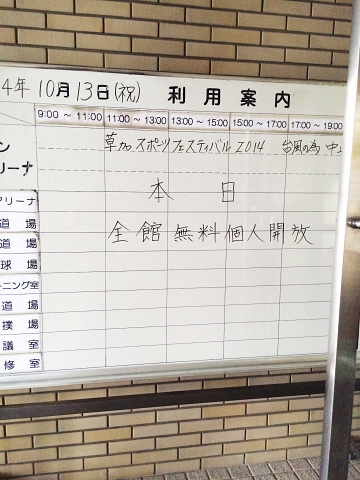 4年10月13日(祝) 利用案内
9:00 ～ 11:00 11:00 ～ 13:00 13:00 ～ 15:00 15:00 ～ 17:00 17:00 ～ 19:00
ン
草加スポーツフェスティバル 2014 台風の為 中
リーナ
アリーナ
本 日
道 場
全館無料個人開放
道 場
球 場
ーニング室
道 場
撲 場
議 室
修 室